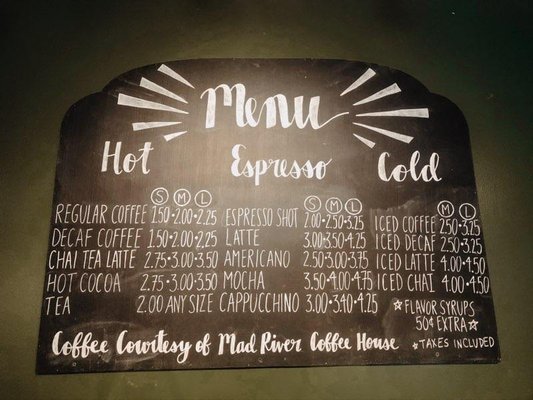 Menu
Hot Espresso Cold
S M L
S M L
M L
REGULAR COFFEE 1.50•2.00•2.25
DECAF COFFEE 1.50•2.00•2.25
CHAI TEA LATTE 2.75•3.00•3.50
HOT COCOA 2.75•3.00•3.50
TEA 2.00 ANY SIZE
ESPRESSO SHOT 2.00•2.50•3.25
LATTE 3.00•3.50•4.25
AMERICANO 2.50•3.00•3.75
MOCHA 3.50•4.00•4.75
CAPPUCCINO 3.00•3.40•4.25
ICED COFFEE 2.50•3.25
ICED DECAF 2.50•3.25
ICED LATTE 4.00•4.50
ICED CHAI 4.00•4.50
☆FLAVOR SYRUPS
50¢ EXTRA☆
*TAXES INCLUDED
Coffee Courtesy of Mad River Coffee House